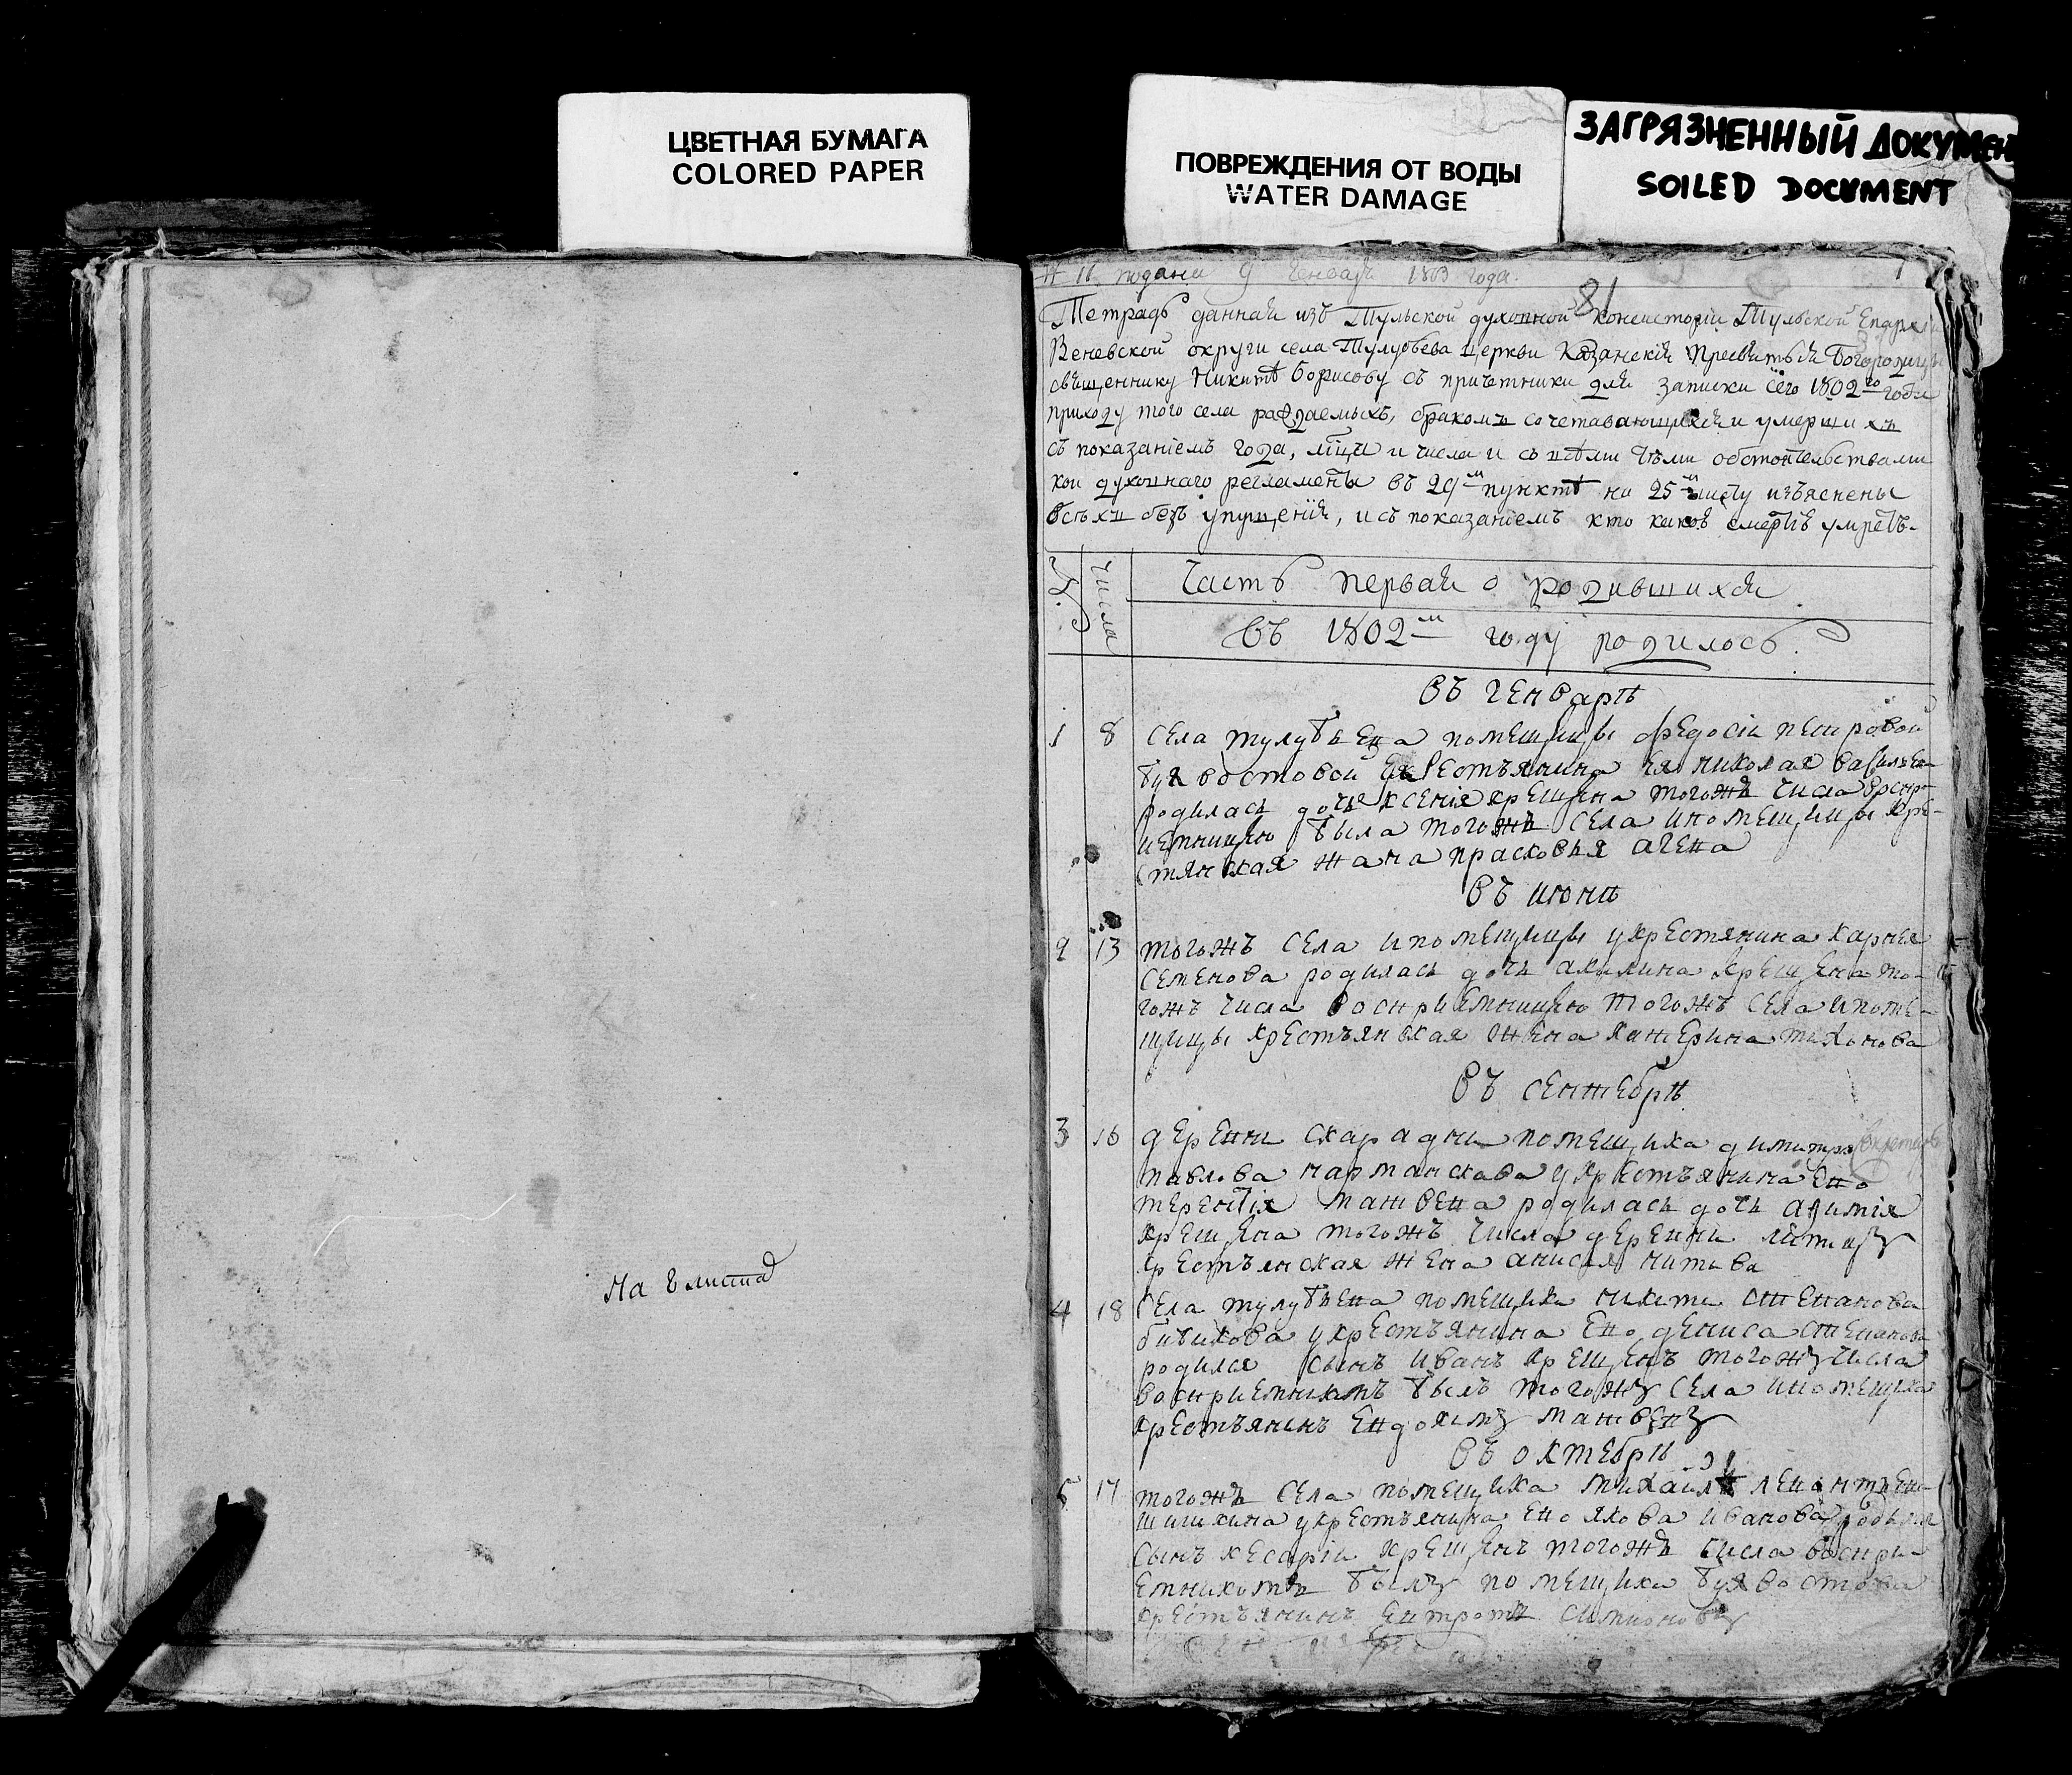 ЦВЕТНАЯ БУМАГА
COLORED PAPER
ПОВРЕЖДЕНИЯ ОТ ВОДЫ
WATER DAMAGE
ЗАГРЯЗНЕННЫЙ ДОКУМЕН
SOILED DOCUMENT
На листа
№ 16 подана 9 генваря 1803 года.
1
81
Тетрадь данная изъ Тульской духовной консисторіи Тульской Епархіи
Веневской округи села Тулубьева церкви Казанскія Пресвятыя Богородицы
священнику Никитѣ Борисову съ причетники для записки сего 1802го года
приходу того села раждаемыхъ, бракомъ сочетавающихся и умершихъ
съ показаніемъ года, мца и числа и съ тѣми обстоятельствами
кои духовнаго регламента въ 29м пунктѣ на 25м листу изъяснены
всѣхъ безъ упущенія, и съ показаніемъ кто какою смертію умретъ.
Числа
Часть первая о родившихся
въ 1802м году родилось.
въ генварѣ
1 8 села тулубьева помещицы федосіи петровой
родилась дочь ксенія крещена тогожъ числа воспри-
емницею была тогожъ села и помещицы кре-
стянская жана прасковья
въ июнѣ
2 13 тогожъ села и помещицы у крестянина карнея
семенова родилась дочь акилина крещена то-
гожъ числа восприемницею тогожъ села и поме-
щицы крестьянская жена катерина тихонова
въ сентебрѣ
3 16 деревни помещика димитрея
павлова у крестьянина ево
терентія матвева родилась дочь
крещена тогожъ числа деревни
крестьянская жена анисья
4 18 села тулубьева помещика никиты степанова
бибикова у крестьянина ево дениса степанова
родился сынъ иванъ крещенъ тогожъ числа
восприемникомъ былъ тогожъ села и помещика
крестьянинъ евдокимъ матвевъ
въ октебрѣ
5 17 тогожъ села помещика михаила левонтьева
шишкина у крестьянина ево якова иванова родился
сынъ кесарій крещенъ тогожъ числа воспри-
емникомъ былъ помещика
крестьянинъ